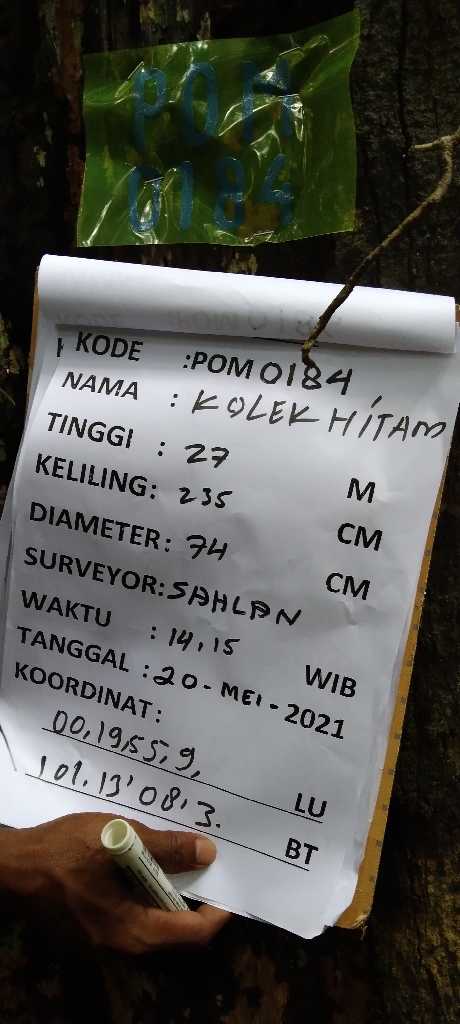 POM
0184
KODE :POM0184,
NAMA : KOLEK HITAM
TINGGI : 27 M
KELILING: 235 CM
DIAMETER: 74 CM
SURVEYOR:SAHLAN
WAKTU : 14,15 WIB
TANGGAL :20-MEI-2021
KOORDINAT:
00,19,55,9, LU
101.13'08'3. BT